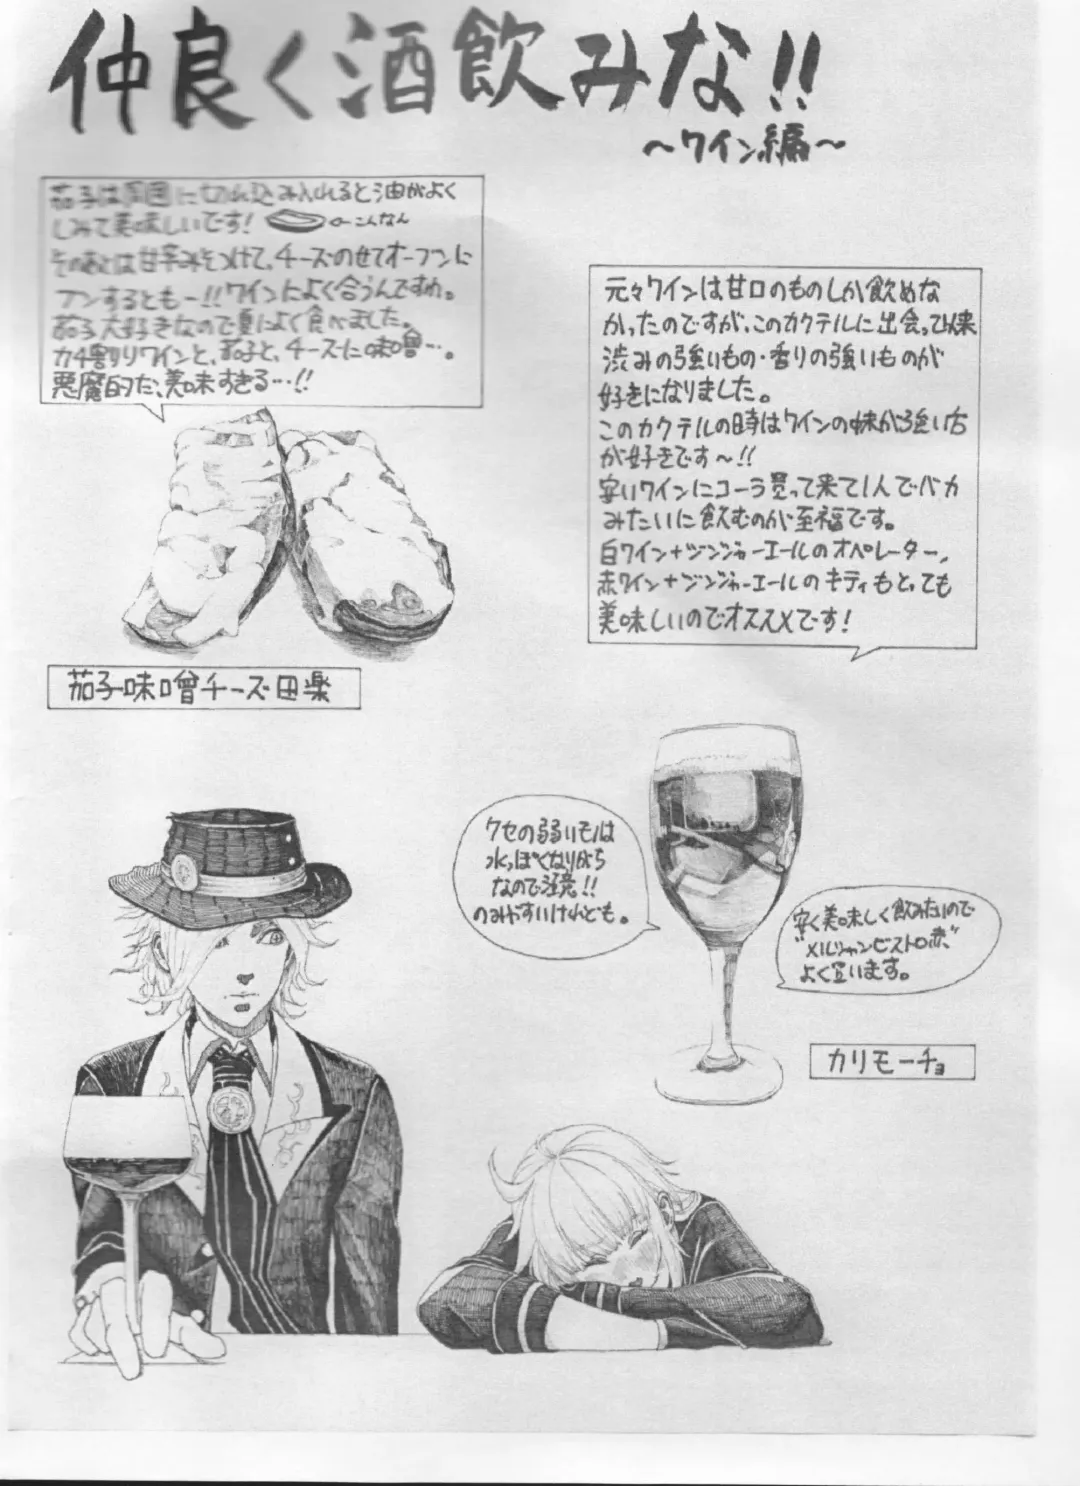 仲良く酒飲みな!!
〜ワイン編〜
茄子は周囲に切れ込み入れると油がよく
しみて美味しいです!
←こんなん
そのあとは甘辛みそつけて、チーズのせてオーブンに
ブンするともー!!ワインによく合うんですね。
茄子大好きなので夏によく食べました。
カチ割りワインと、茄子と、チーズに味噌…。
悪魔的だ、美味すぎる…!!
茄子味噌チーズ田楽
元々ワインは甘口のものしか飲めな
かったのですが、このカクテルに出会って以来
渋みの強いもの・香りの強いものが
好きになりました。
このカクテルの時はワインの味が強い店
が好きです〜!!
安いワインにコーラ買って来て1人でバカ
みたいに飲むのが至福です。
白ワイン+ジンジャーエールのオペレーター、
赤ワイン+ジンジャーエールのキティもとっても
美味しいのでオススメです!
クセの弱いモノは
水っぽくなりがち
なので注意!!
のみやすいけれども。
安く美味しく飲みたいので
"メルシャンビストロ赤"
よく買います。
カリモーチョ